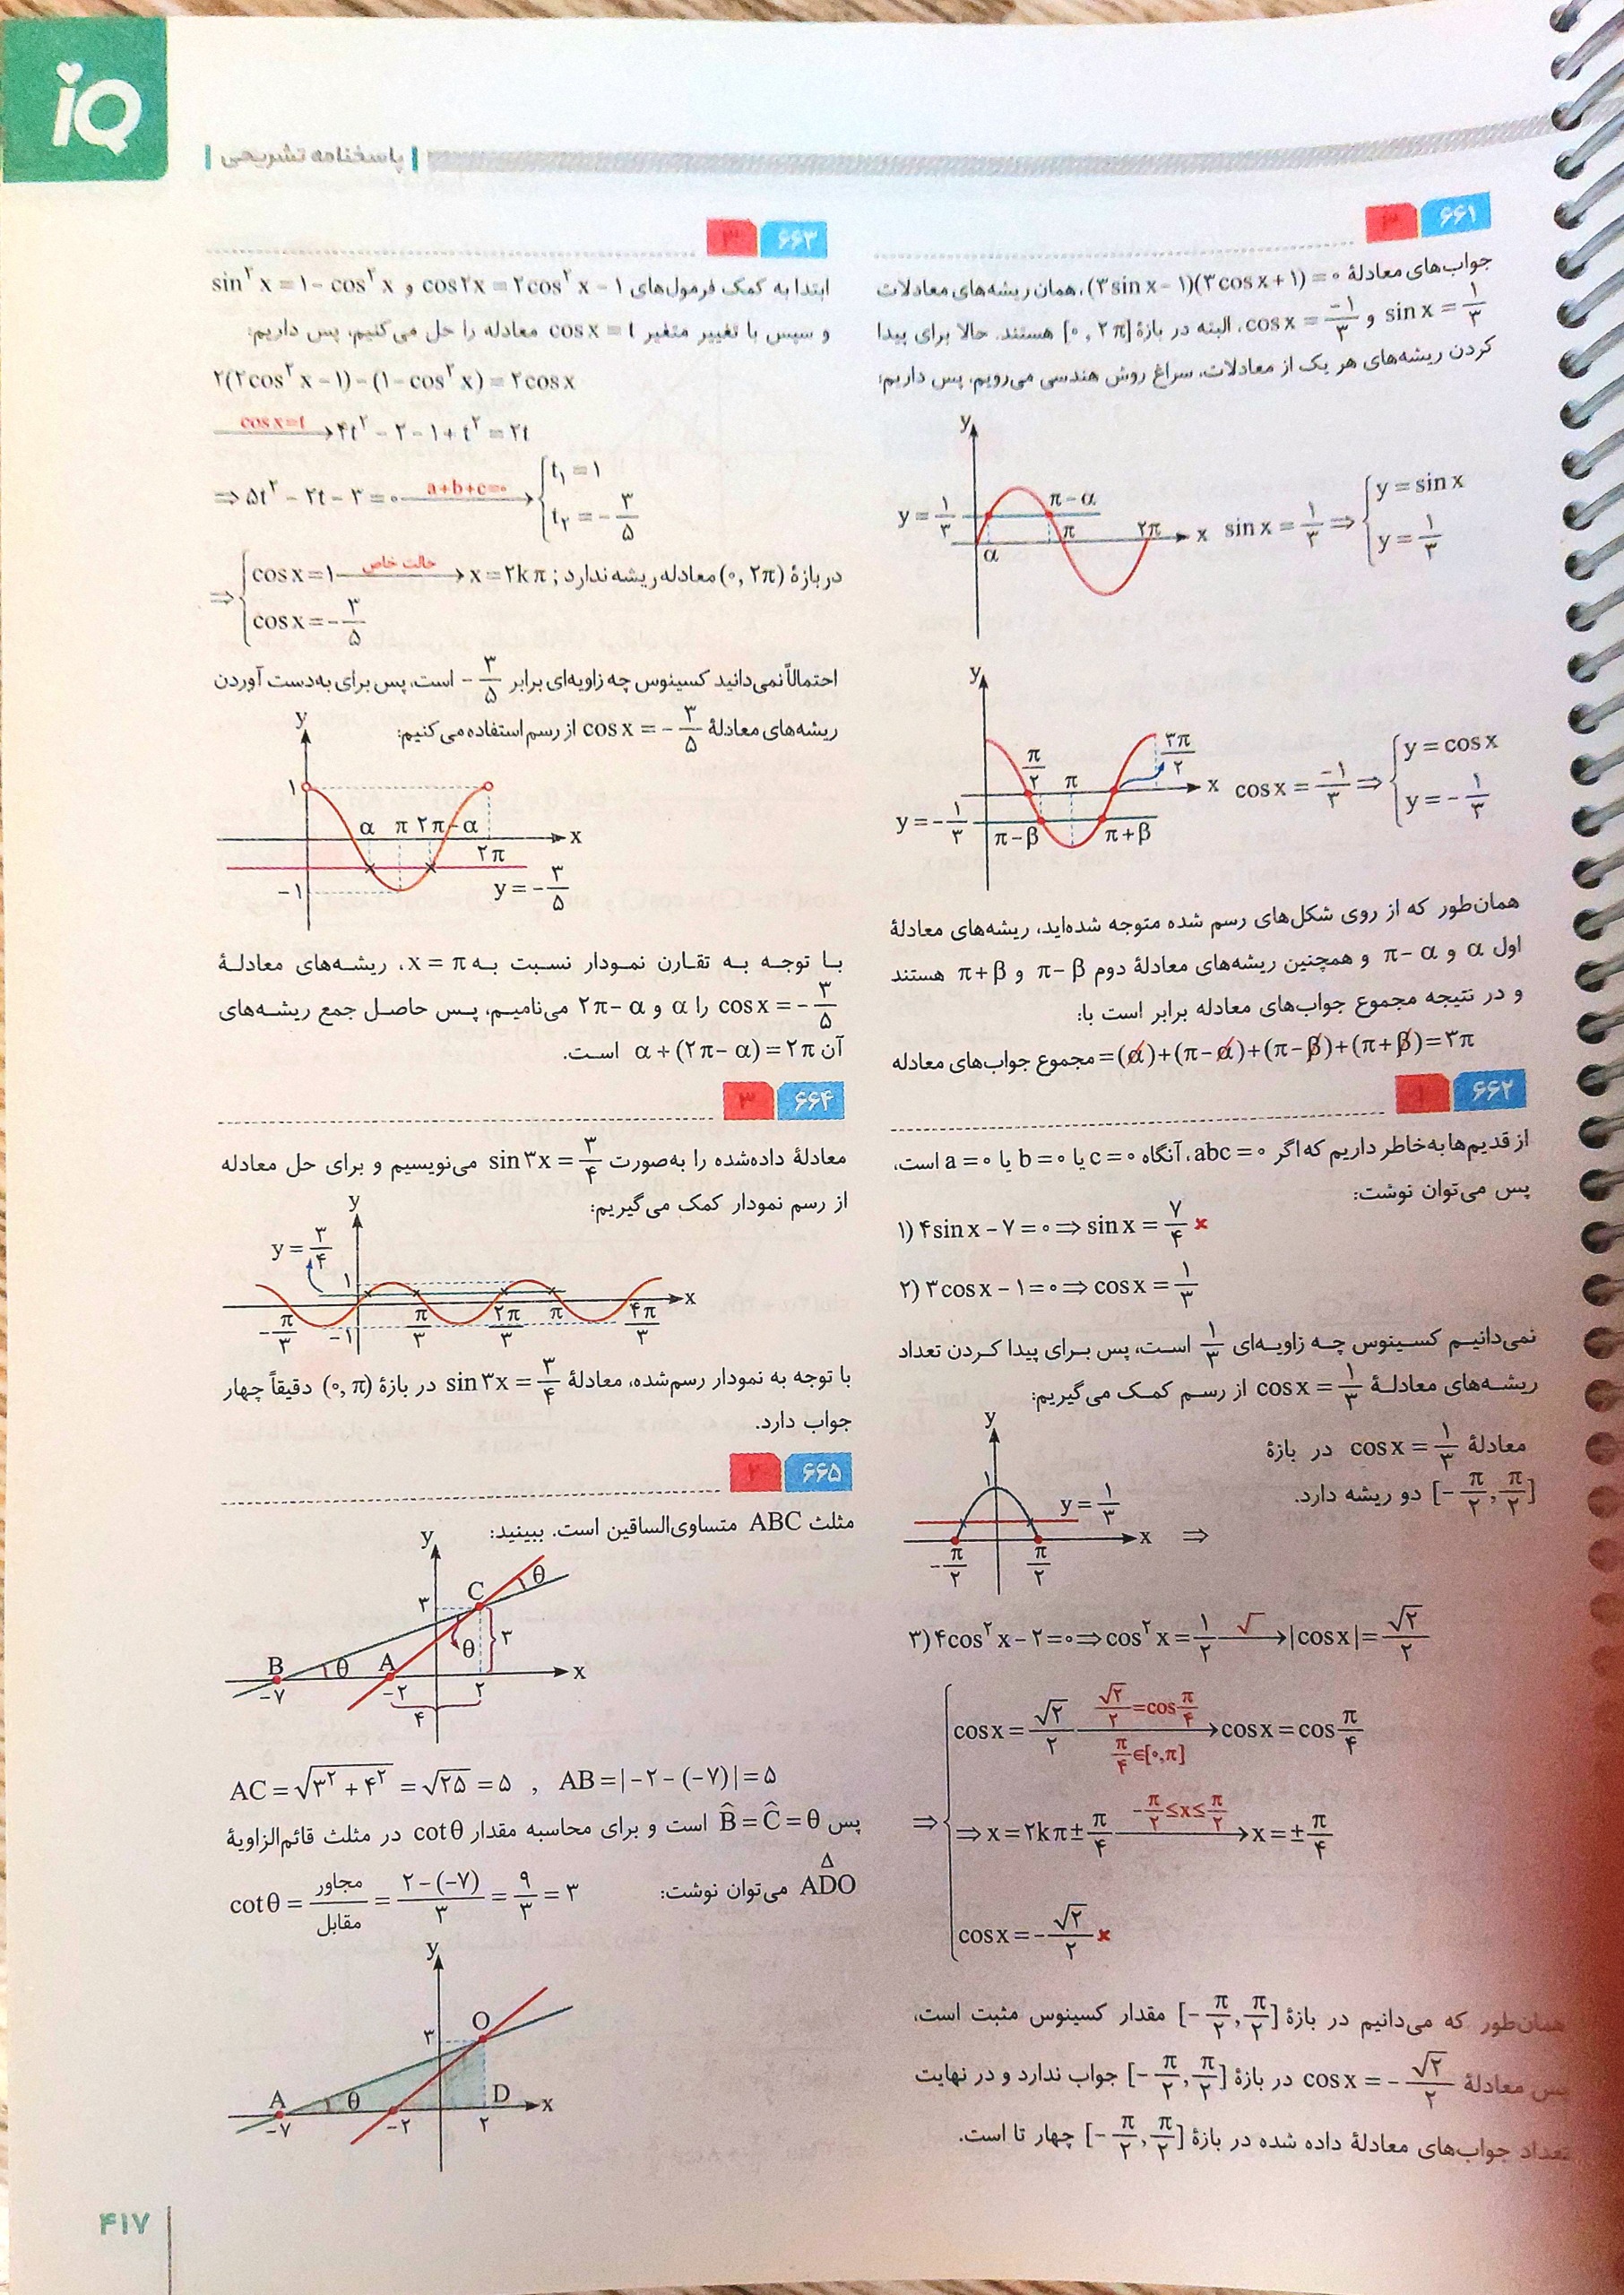 iQ
پاسخنامه تشریحی
۶۶۱ ۳
جواب‌های معادلهٔ (۳sin x − ۱)(۳cos x + ۱) = ۰، همان ریشه‌های معادلات
sin x = ۱/۳ و cos x = −۱/۳، البته در بازهٔ [۰, ۲π] هستند. حالا برای پیدا
کردن ریشه‌های هر یک از معادلات، سراغ روش هندسی می‌رویم، پس داریم:
y
y = ۱/۳ α π − α π ۲π x
sin x = ۱/۳ ⇒ { y = sin x
y = ۱/۳
y
π/۲ π ۳π/۲ x
y = −۱/۳ π − β π + β
cos x = −۱/۳ ⇒ { y = cos x
y = −۱/۳
همان‌طور که از روی شکل‌های رسم شده متوجه شده‌اید، ریشه‌های معادلهٔ
اول α و π − α و همچنین ریشه‌های معادلهٔ دوم π − β و π + β هستند
و در نتیجه مجموع جواب‌های معادله برابر است با:
مجموع جواب‌های معادله = (α) + (π − α) + (π − β) + (π + β) = ۳π
۶۶۲ ۱
از قدیم‌ها به‌خاطر داریم که اگر abc = ۰، آنگاه c = ۰ یا b = ۰ یا a = ۰ است،
پس می‌توان نوشت:
۱) ۴sin x − ۷ = ۰ ⇒ sin x = ۷/۴ ×
۲) ۳cos x − ۱ = ۰ ⇒ cos x = ۱/۳
نمی‌دانیم کسینوس چه زاویه‌ای ۱/۳ است، پس برای پیدا کردن تعداد
ریشه‌های معادلهٔ cos x = ۱/۳ از رسم کمک می‌گیریم:
y
۱ y = ۱/۳
−π/۲ π/۲ x
⇒
معادلهٔ cos x = ۱/۳ در بازهٔ
[−π/۲, π/۲] دو ریشه دارد.
۳) ۴cos² x − ۲ = ۰ ⇒ cos² x = ۱/۲ —√→ |cos x| = √۲/۲
⇒ { cos x = √۲/۲ —(√۲/۲ = cos π/۴, π/۴ ∈ [۰, π])→ cos x = cos π/۴
⇒ x = ۲kπ ± π/۴ —(−π/۲ ≤ x ≤ π/۲)→ x = ±π/۴
cos x = −√۲/۲ ×
همان‌طور که می‌دانیم در بازهٔ [−π/۲, π/۲] مقدار کسینوس مثبت است،
پس معادلهٔ cos x = −√۲/۲ در بازهٔ [−π/۲, π/۲] جواب ندارد و در نهایت
تعداد جواب‌های معادلهٔ داده شده در بازهٔ [−π/۲, π/۲] چهار تا است.
۶۶۳ ۳
ابتدا به کمک فرمول‌های cos ۲x = ۲cos² x − ۱ و sin² x = ۱ − cos² x
و سپس با تغییر متغیر cos x = t معادله را حل می‌کنیم، پس داریم:
۲(۲cos² x − ۱) − (۱ − cos² x) = ۲cos x
—(cos x = t)→ ۴t² − ۲ − ۱ + t² = ۲t
⇒ ۵t² − ۲t − ۳ = ۰ —(a+b+c=۰)→ { t₁ = ۱
t₂ = −۳/۵
⇒ { cos x = ۱ —(حالت خاص)→ x = ۲kπ ; در بازهٔ (۰, ۲π) معادله ریشه ندارد
cos x = −۳/۵
احتمالاً نمی‌دانید کسینوس چه زاویه‌ای برابر −۳/۵ است، پس برای به‌دست آوردن
ریشه‌های معادلهٔ cos x = −۳/۵ از رسم استفاده می‌کنیم:
y
۱
α π ۲π − α x
۲π
−۱ y = −۳/۵
با توجه به تقارن نمودار نسبت به x = π، ریشه‌های معادلهٔ
cos x = −۳/۵ را α و ۲π − α می‌نامیم، پس حاصل جمع ریشه‌های
آن α + (۲π − α) = ۲π است.
۶۶۴ ۳
معادلهٔ داده‌شده را به‌صورت sin ۳x = ۳/۴ می‌نویسیم و برای حل معادله
از رسم نمودار کمک می‌گیریم:
y
y = ۳/۴ ۱
x
−π/۳ −۱ π/۳ ۲π/۳ π ۴π/۳
با توجه به نمودار رسم‌شده، معادلهٔ sin ۳x = ۳/۴ در بازهٔ (۰, π) دقیقاً چهار
جواب دارد.
۶۶۵ ۲
مثلث ABC متساوی‌الساقین است. ببینید:
y
C θ
۳ θ ۳
B θ A x
−۷ −۲ ۲
۴
AC = √(۳² + ۴²) = √۲۵ = ۵ , AB = |−۲ − (−۷)| = ۵
پس B̂ = Ĉ = θ است و برای محاسبه مقدار cot θ در مثلث قائم‌الزاویهٔ
ADO می‌توان نوشت:
cot θ = مجاور/مقابل = (۲ − (−۷))/۳ = ۹/۳ = ۳
y
O
۳
A θ D x
−۷ −۲ ۲
۴۱۷